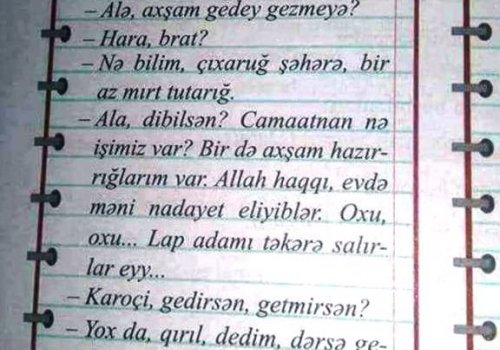 – Alə, axşam gedey gezmeyə?
– Hara, brat?
– Nə bilim, çıxaruğ şəhərə, bir
az mırt tutarığ.
– Ala, dibilsən? Camaatnan nə
işimiz var? Bir də axşam hazır-
rığlarım var. Allah haqqı, evdə
məni nadayet eliyiblər. Oxu,
oxu... Lap adamı təkərə salır-
lar eyy...
– Karoçi, gedirsən, getmirsən?
– Yox da, qırıl, dedim, dərsə ge-